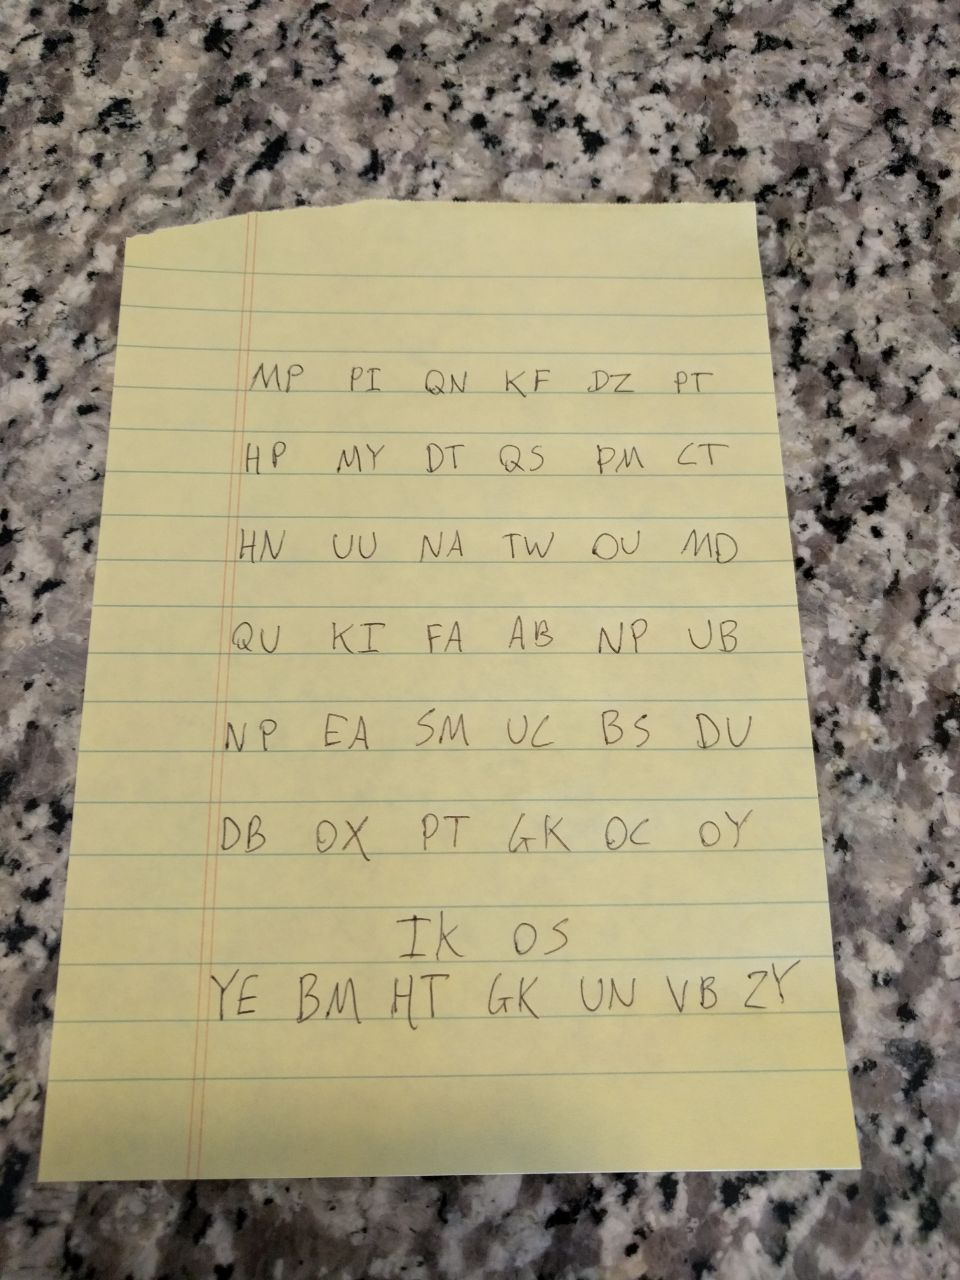 MP PI QN KF DZ PT
HP MY DT QS PM CT
HN UU NA TW OU MD
QU KI FA AB NP UB
NP EA SM UC BS DU
DB OX PT GK OC OY
IK OS
YE BM HT GK UN VB ZY